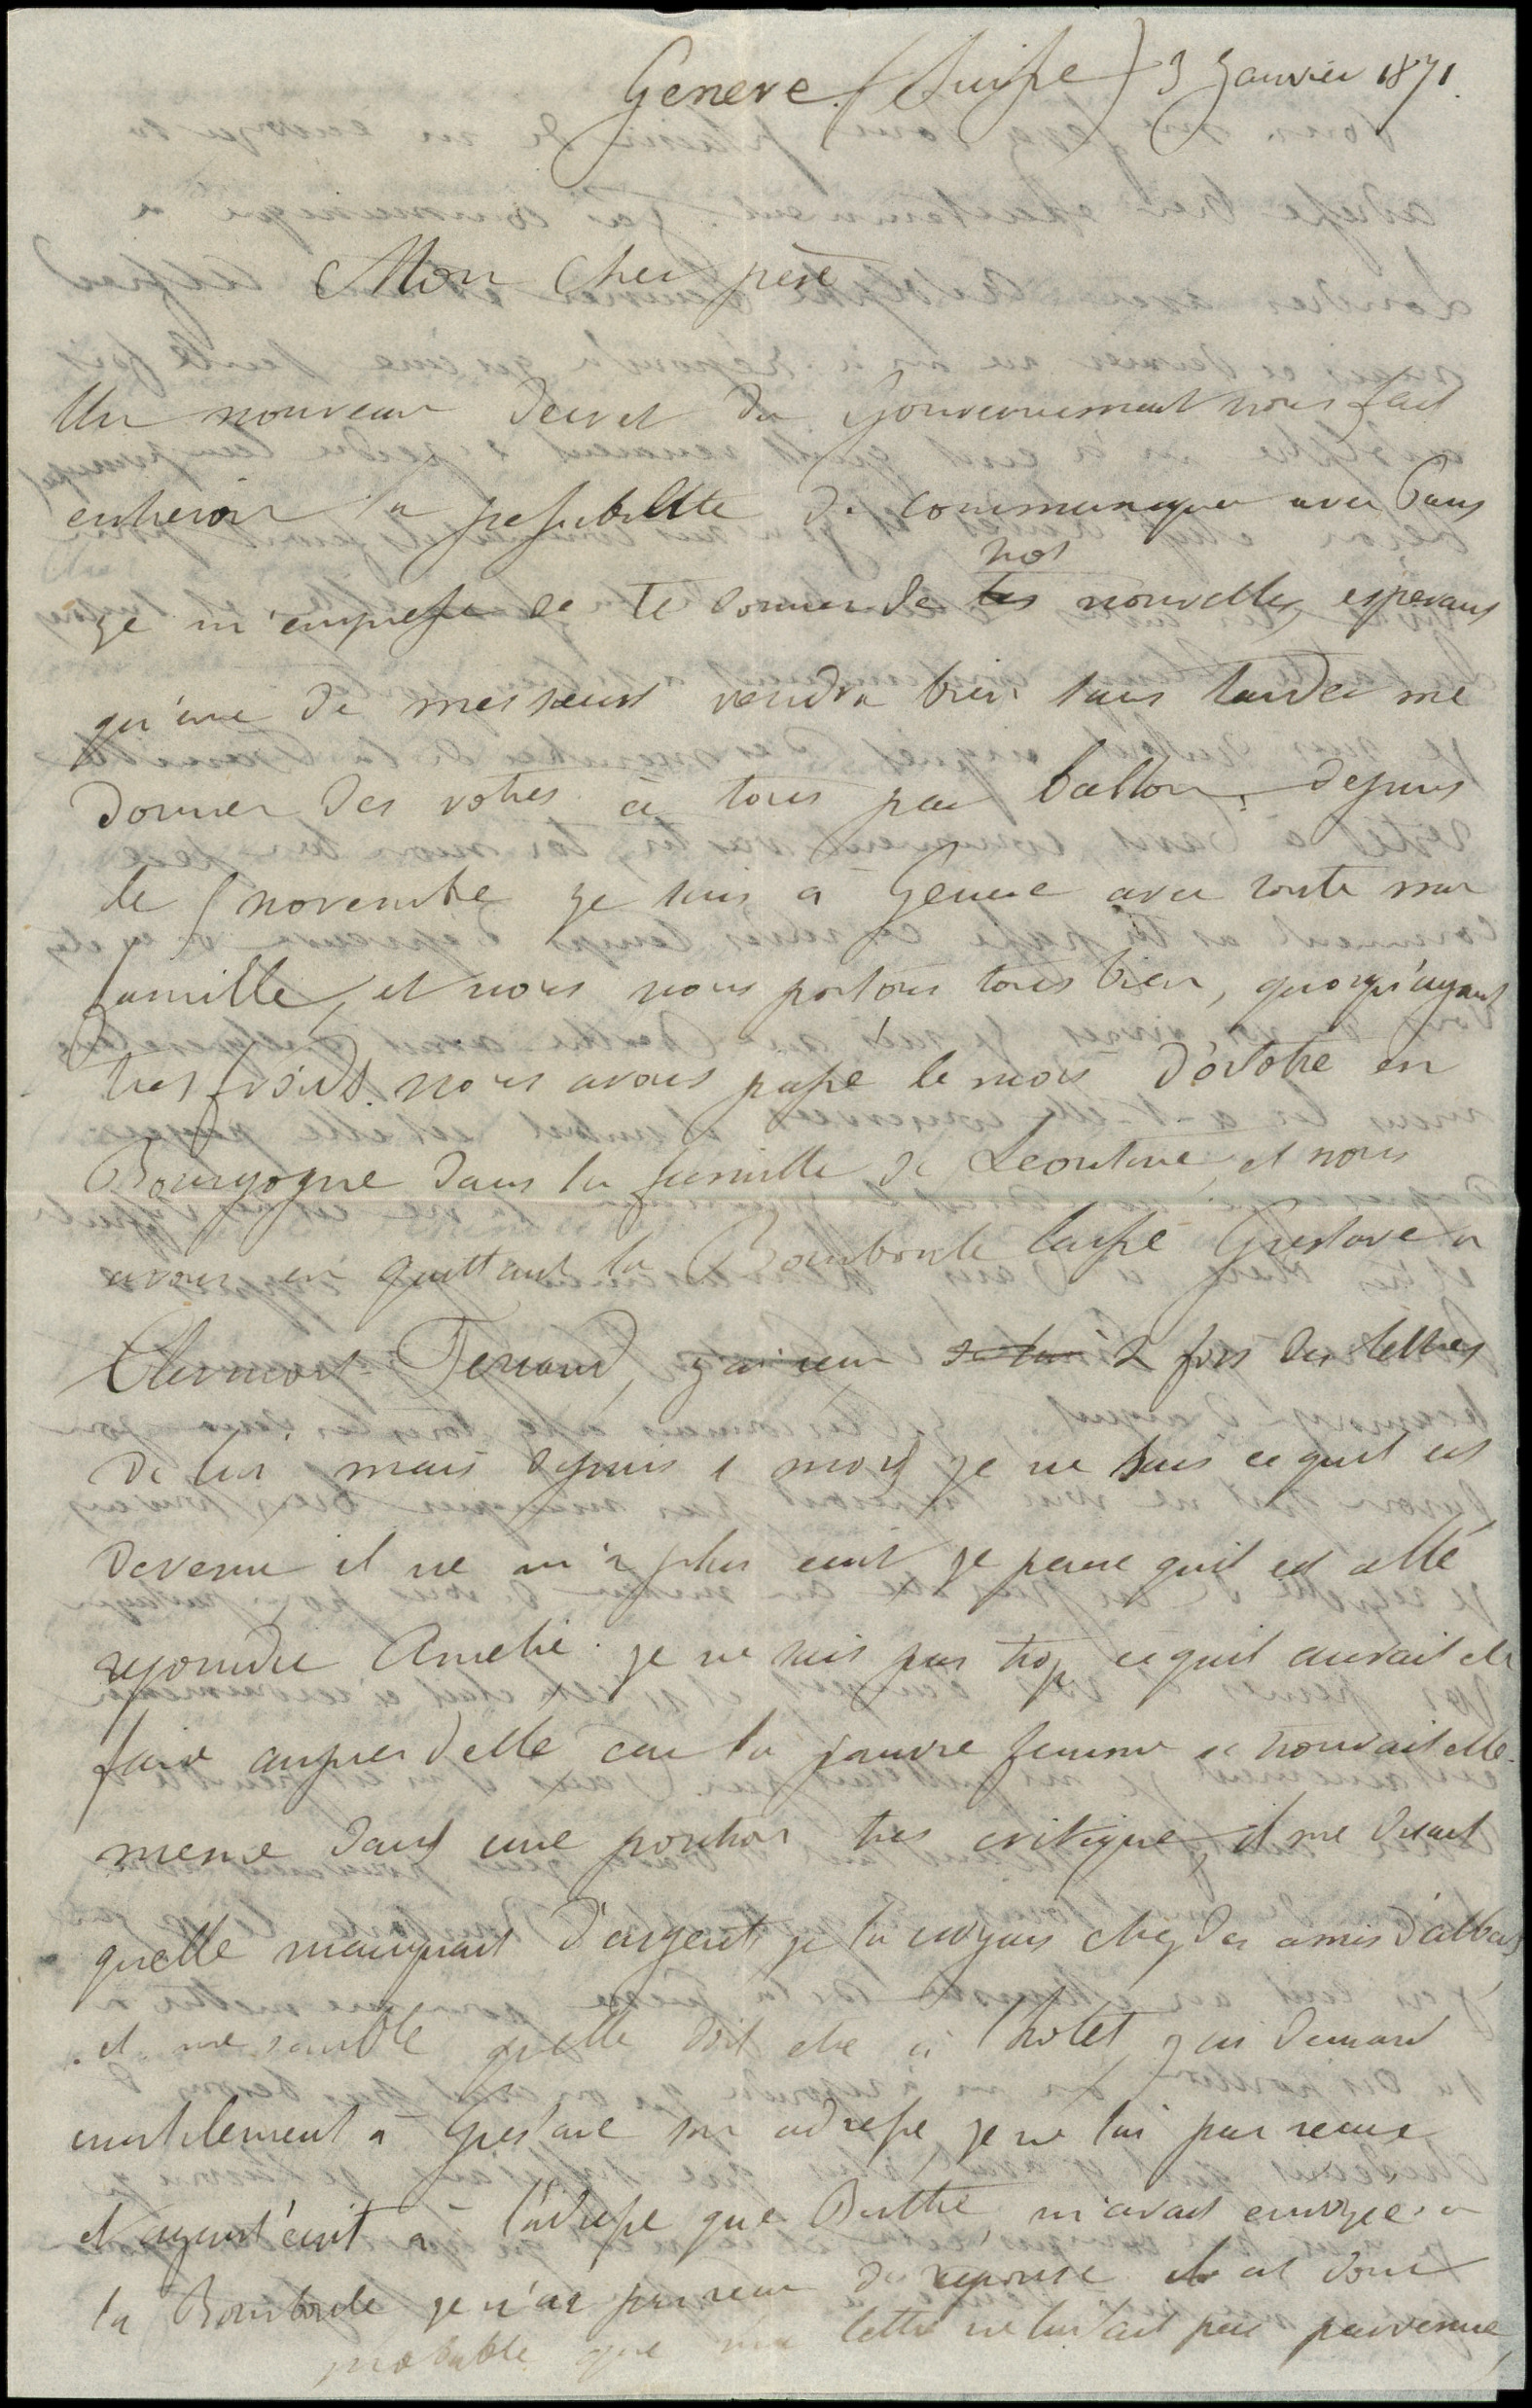 Geneve (Suisse) 3 Janvier 1871.
Mon Cher père
Un nouveau decret du Gouvernement nous fait
entrevoir la possibilité de communiquer avec Paris
je m'empresse de te donner de nos nouvelles, esperant
qu'une de mes sœurs voudra bien sans tarder me
donner des votres à tous par ballon. depuis
le novembre je suis à Geneve avec toute ma
famille, et nous nous portons tous bien, quoiqu'ayant
tres froid. nous avons passé le mois d'octobre en
Bourgogne dans la famille de Leontine, et nous
avons en quittant la Bourboule laissé Gustave a
Clermont-Ferrand, j'ai recu 2 fois des lettres
de lui mais depuis 1 mois je ne sais ce quil est
devenu il ne m'a plus ecrit je pense quil est allé
rejoindre Amelie. je ne sais pas trop ce quil aurait eu
faire aupres d'elle car la pauvre femme se trouvait elle-
meme dans une position tres critique, il me disait
quelle manquait d'argent, je la croyais chez des amis d'alors
il me semble quelle doit etre à l'hotel, j'ai demandé
inutilement à Gustave son adresse, je ne l'ai pas recue
et ayant écrit à l'adresse que Berthe m'avait envoyée a
la Bourboule je n'ai pas recu de reponse il est donc
probable que ma lettre ne lui soit pas parvenue,